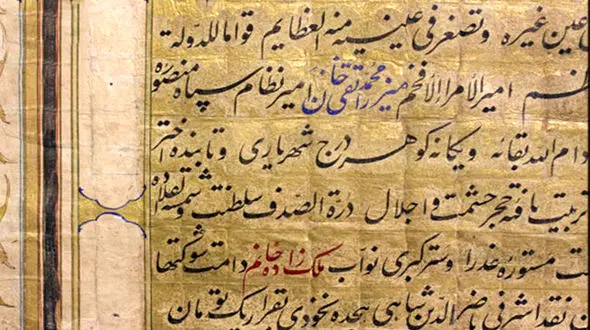 عین غیره وتصغر فی عینه منه العظایم قواما للدولة
امیر الامراء الافخم میرزا محمد تقی خان امیر نظام سپاه منصوره
دام الله بقائه و یگانه گوهر درج شهریاری و تابنده اختر
تربیت یافته حجر حشمت و اجلال درة الصدف سلطنت و شمسه قلاده
مستوره عذرا و ستر کبری نواب ملک زاده خانم دامت شوکتها
نقد اشرفی ناصر الدین شاهی هجده نخودی بقرار یک تومان